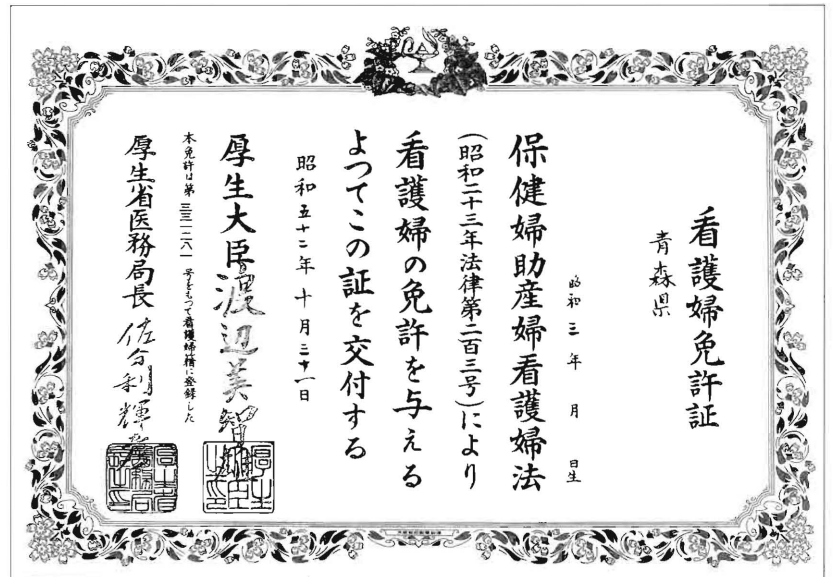 看護婦免許証
青森県
昭和三年　月　日生
保健婦助産婦看護婦法
(昭和二十三年法律第二百三号)により
看護婦の免許を与える
よつてこの証を交付する
昭和五十二年十月二十一日
厚生大臣渡辺美智雄
本免許は第三三一二八一号をもつて看護婦籍に登録した
厚生省医務局長佐分利輝彦